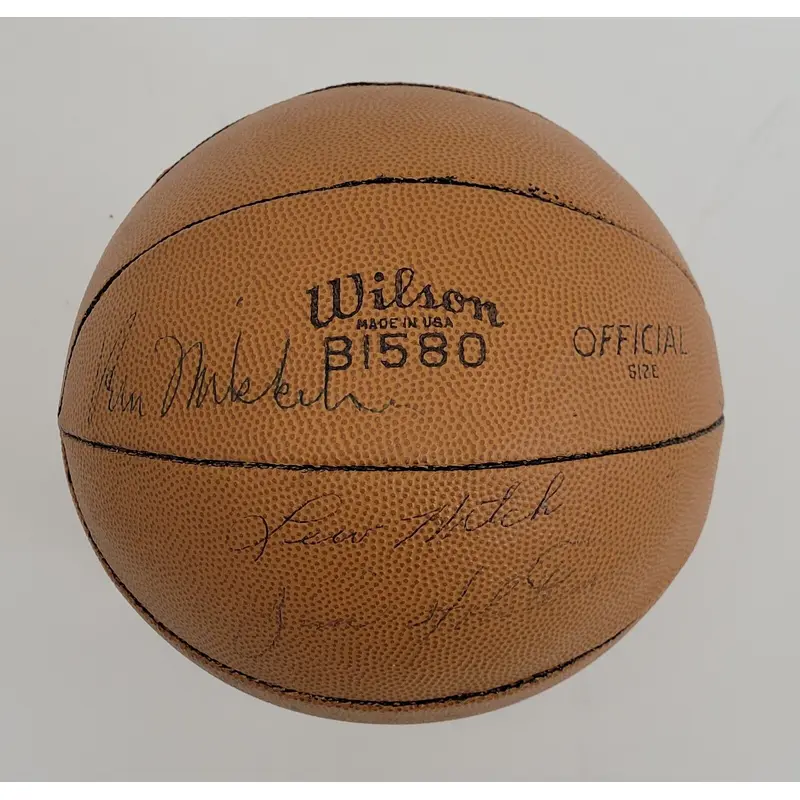 Wilson
MADE IN USA
B1580
OFFICIAL
SIZE
Vern Mikkelsen
Lew Hitch